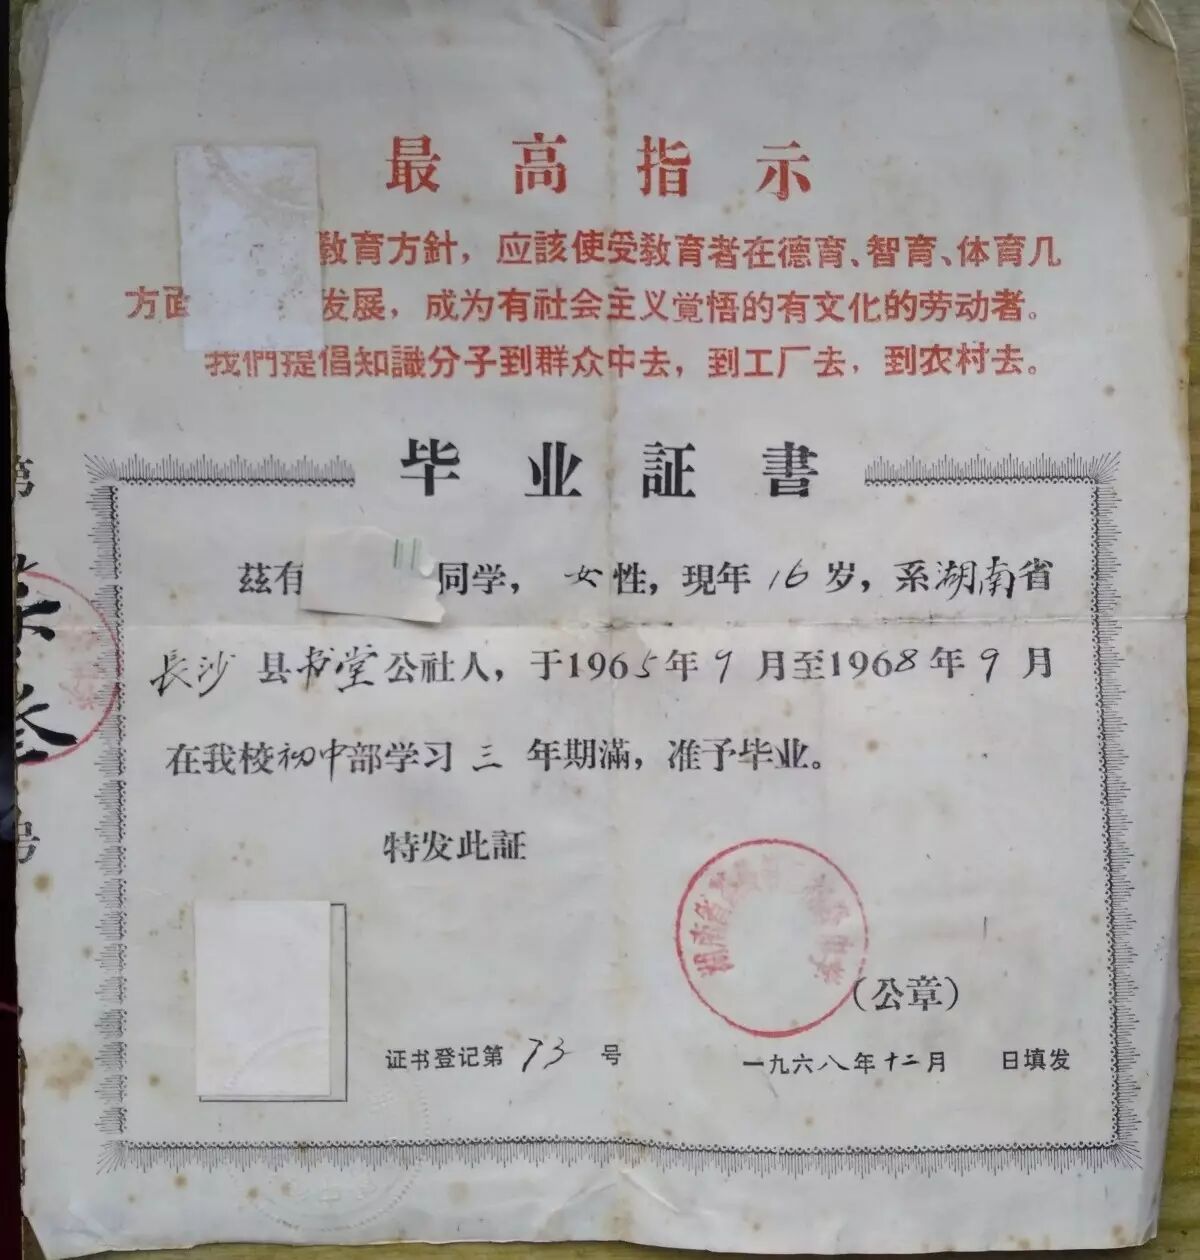 最高指示
教育方針，应該使受教育者在德育、智育、体育几
方面发展，成为有社会主义覚悟的有文化的劳动者。
我們提倡知識分子到群众中去，到工厂去，到农村去。
毕业証書
第
叁
号
兹有同学，女性，現年16岁，系湖南省
長沙县书堂公社人，于1965年9月至1968年9月
在我校初中部学习三年期滿，准予毕业。
特发此証
湖南省 中学
(公章)
证书登记第73号
一九六八年十二月 日填发